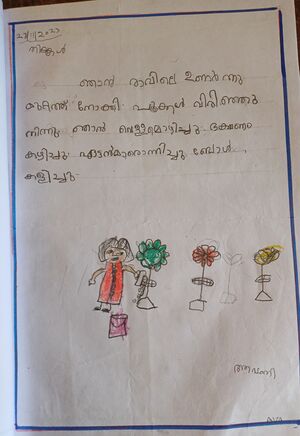 23/11/2023
നിക്കൾ
ഞാൻ രാവിലെ ഉണർന്നു
മുറ്റത്ത് നോക്കി പൂക്കൾ വിരിഞ്ഞു
നിന്നു ഞാൻ വെള്ളമൊഴിച്ചു ഭക്ഷണം
കഴിച്ചു ഏട്ടൻമാരൊന്നിച്ചു ബോൾ
കളിച്ചു
ആവണി